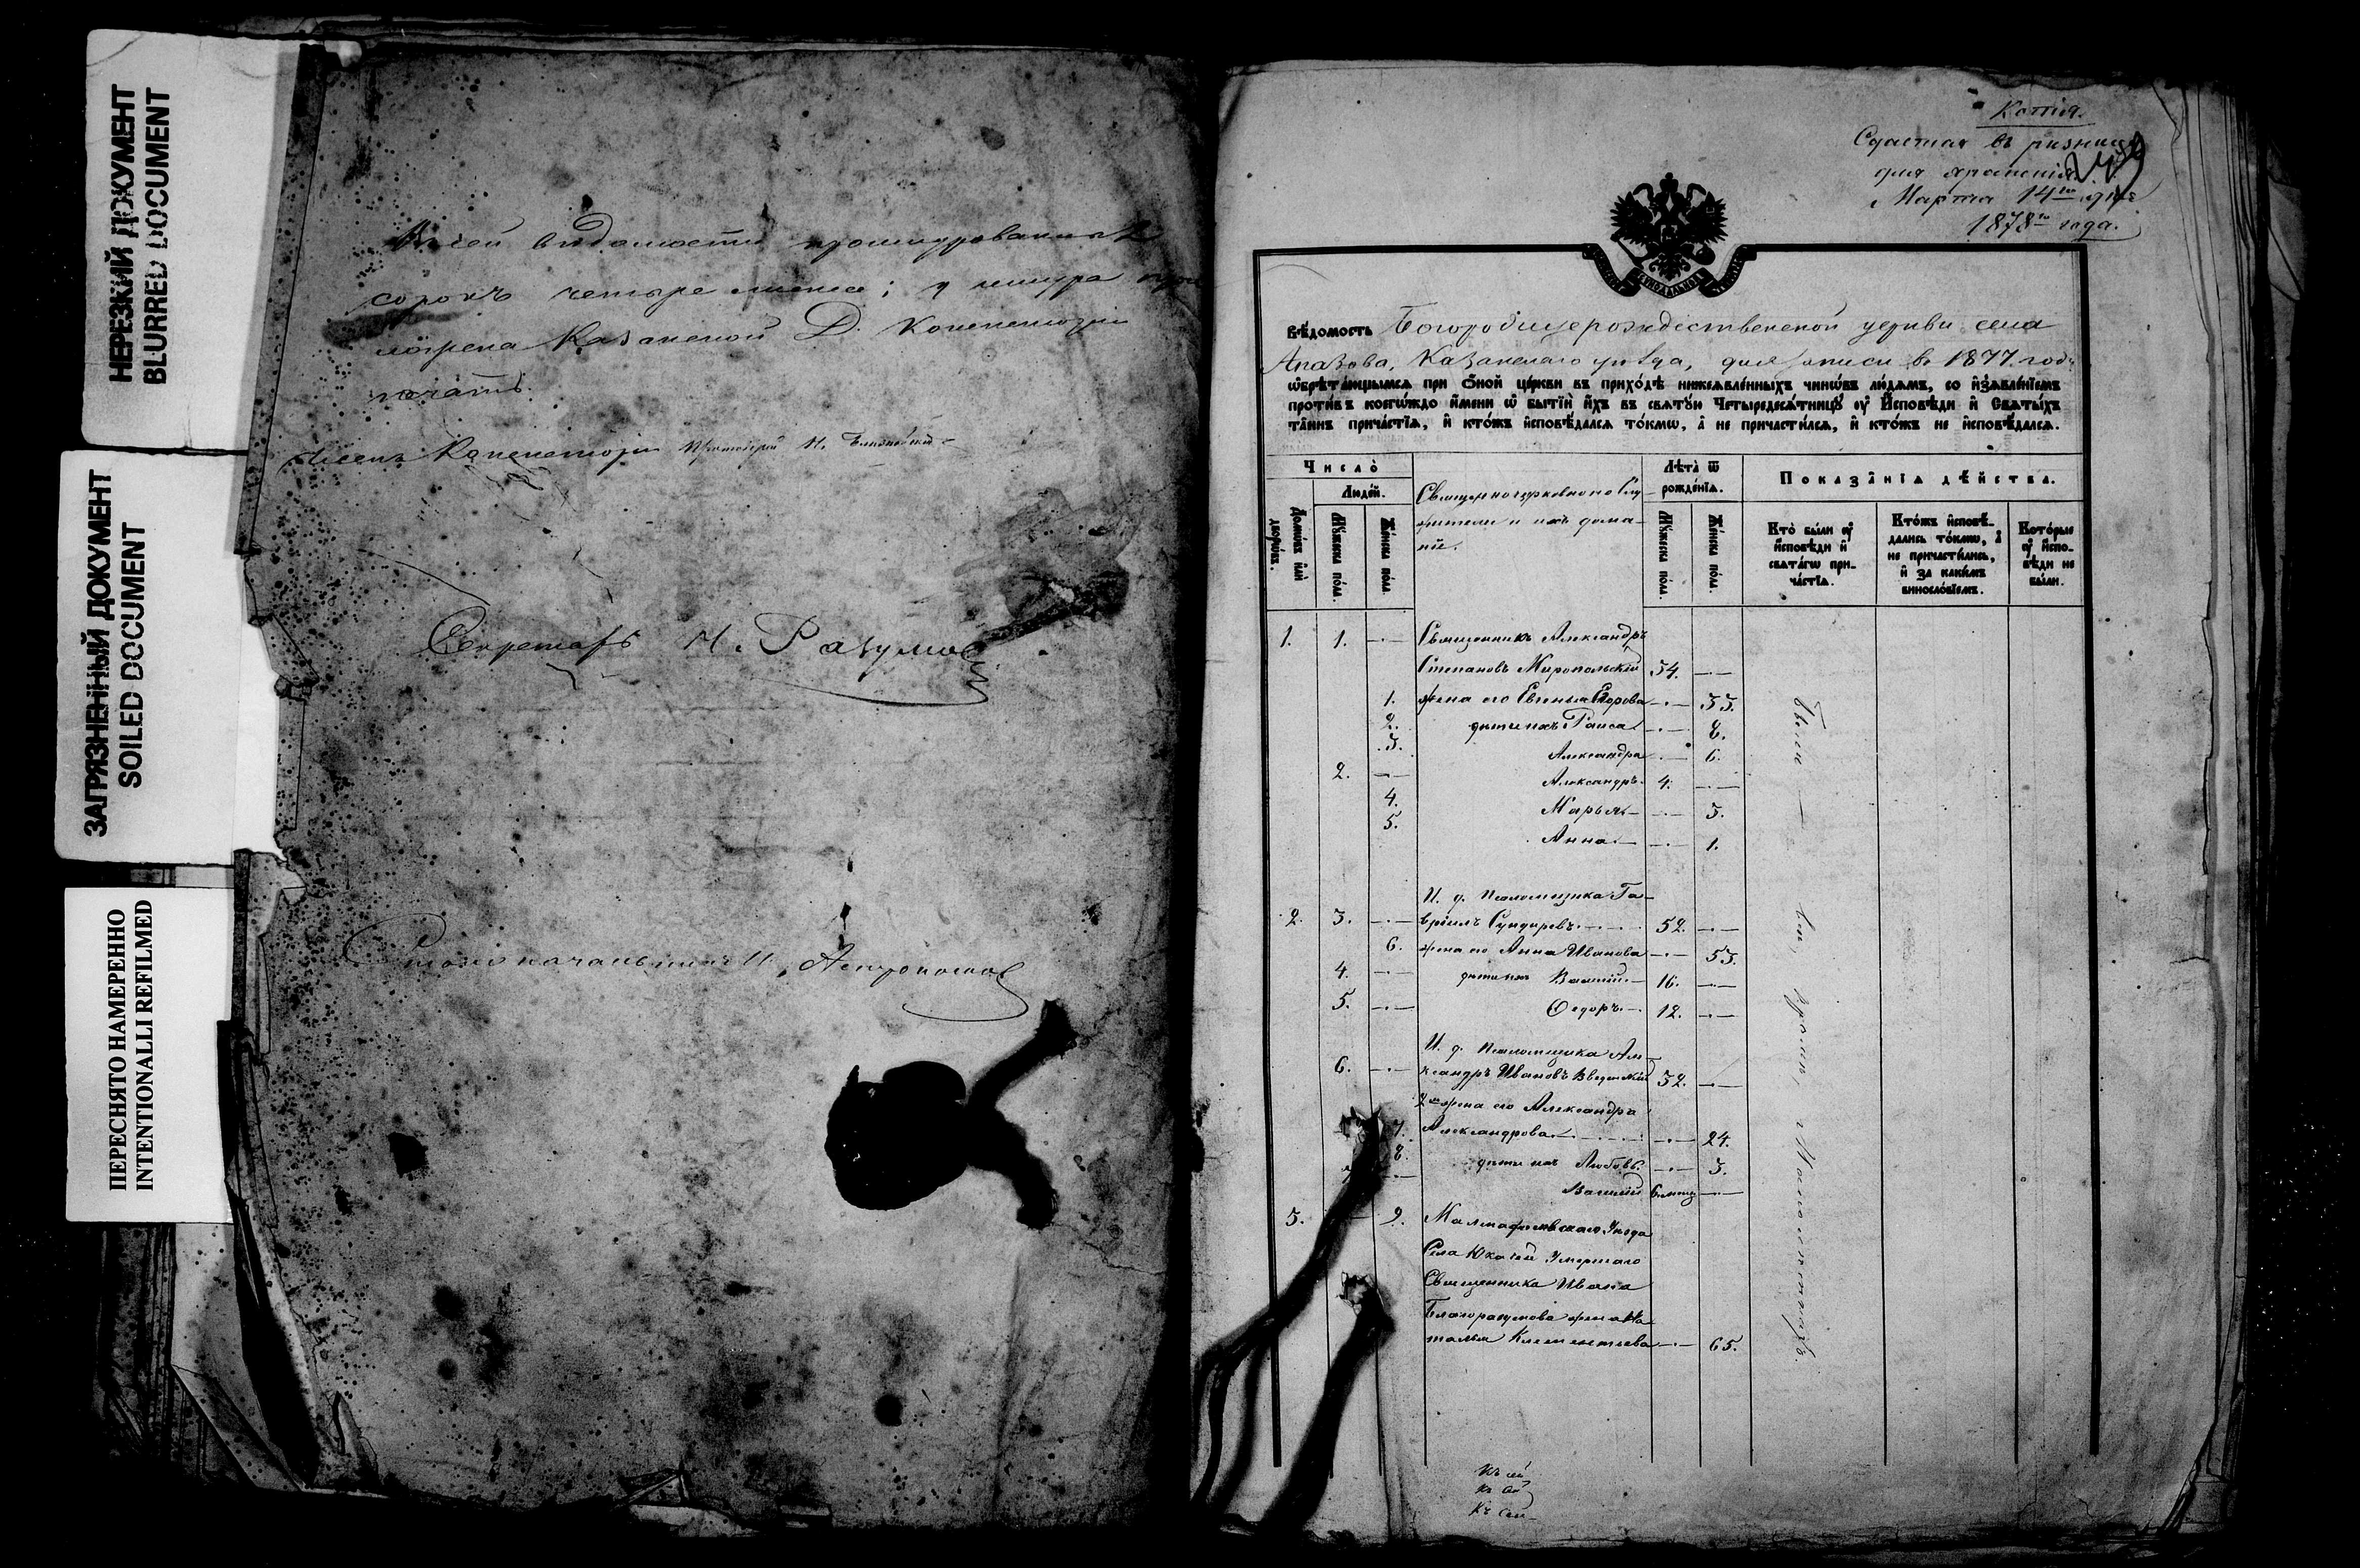 НЕРЕЗКИЙ ДОКУМЕНТ
BLURRED DOCUMENT
ЗАГРЯЗНЕННЫЙ ДОКУМЕНТ
SOILED DOCUMENT
ПЕРЕСНЯТО НАМЕРЕННО
INTENTIONALLI REFILMED
сей ведомости прошнурованныхъ
сорокъ четыре листа; у шнура
Казанской Д. Консисторіи
печать.
Членъ Консисторіи Протоіерей
Секретарь Н. Разумов
Столоначальникъ И.
Копія.
въ ризницу
для храненія
Марта 14го дня
1878го года.
Вѣ́домость Богородицерождественской церкви села
Апазова, Казанскаго уѣзда, для записи въ 1877 годъ
ѡ҆брѣта́ющымсѧ при ѻ҆́ной це́ркви въ прихо́дѣ нижеѧвле́нныхъ чинѡ́въ лю́дѧмъ, со и҆з̾ѧвле́нїемъ
проти́въ коегѡ́ждо и҆́мени ѡ҆ бытїѝ и҆́хъ въ свѧтꙋ́ю Четыредесѧ́тницꙋ ᲂу҆ И҆́сповѣди и҆ Свѧты́хъ
та̑инъ прича́стїѧ, и҆ кто́жъ и҆сповѣ́далсѧ то́кмѡ, а҆ не причасти́лсѧ, и҆ кто́жъ не и҆сповѣ́далсѧ.
Число̀
Люде́й.
Домѡ́въ и҆лѝ дворѡ́въ.
Мꙋ́жеска по́ла.
Же́нска по́ла.
Священноцерковнослу-
жители и ихъ домаш-
ніе.
Лѣ́та ѿ рожде́нїѧ.
Мꙋ́жеска по́ла.
Же́нска по́ла.
Показа̑нїѧ дѣ́йства.
Кто̀ бы́ли ᲂу҆ и҆сповѣ́ди и҆ свѧта́гѡ прича́стїѧ.
Кто́жъ и҆сповѣ́дались то́кмѡ, а҆ не причасти́лись, и҆ за каки́мъ виносло́вїемъ.
Кото́рые ᲂу҆ и҆́споведи не бы́ли.
1. 1. Священникъ Александръ
Степановъ Миропольскій 54.
1. жена его Евгенія Егорова 33.
2. дети ихъ Раиса 8.
3. Александра 6.
2. Александръ 4.
4. Марья 3.
5. Анна 1.
И. д. Псаломщика Га-
2. 3. вріилъ Сундыревъ 52.
6. жена его Анна Иванова 53.
4. дети ихъ Василій 16.
5. Ѳедоръ 12.
И. д. Псаломщика Але-
6. ксандръ Ивановъ Введенскій 52.
2я жена его Александра
7. Александрова 24.
8. дети ихъ Любовь 3.
Василій 6 месяц
3. 9. Мамадышскаго Уезда
Села Юкачей Умершаго
Священника Ивана
Благоразумова жена На
талья Климентьева 65.
Были
Къ сей
Къ сей
Къ сей